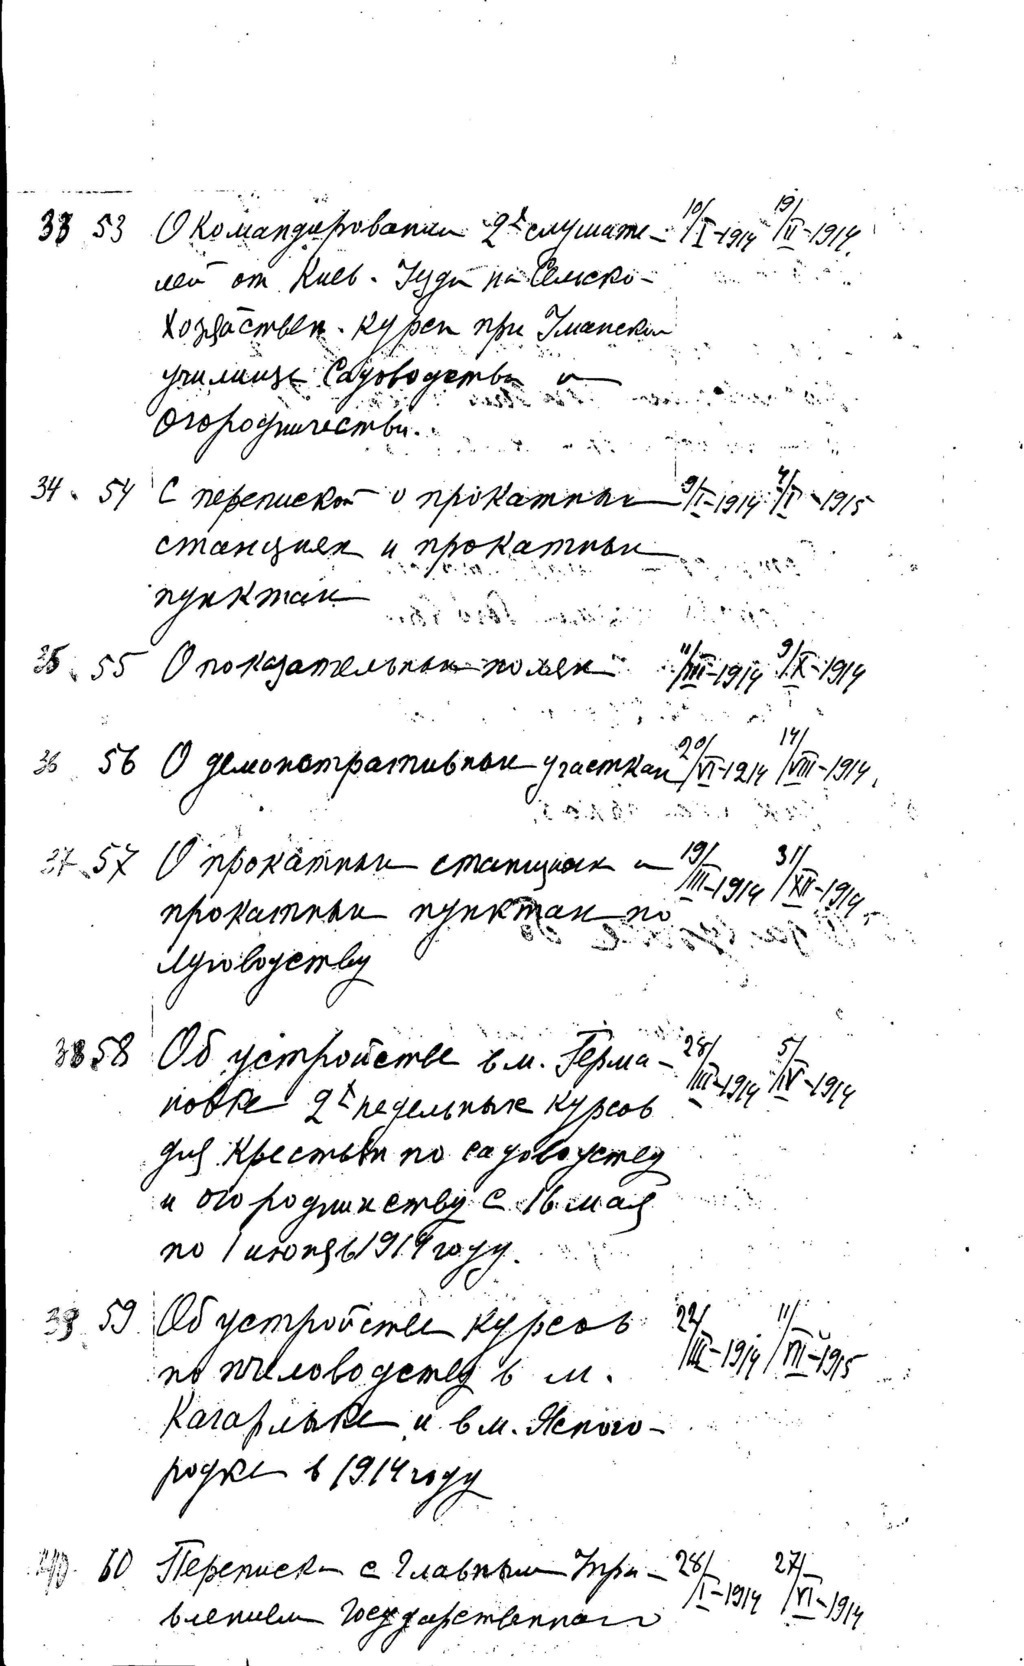 33 53 О командировании 2х слушате- 10/I-1914 19/II-1914.
лей от Киев. Уезда на Сельско-
хозяйствен. курсы при Уманском
училище Садоводства и
огородничества.
34. 54 С перепиской о прокатных 9/I-1914 4/I-1915
станциях и прокатных
пунктах
35. 55 О показательных полях 11/III-1914 9/IX-1914
36 56 О демонстративных участках 20/VI-1914 14/VIII-1914.
37. 57 О прокатных станциях и 19/III-1914 31/XII-1914
прокатных пунктах по
луговодству
38 58 Об устройстве в м. Герма- 28/III-1914 5/IV-1914
новке 2х недельных курсов
для крестьян по садоводству
и огородничеству с 16 мая
по 1 июня 1914 году.
39 59 Об устройстве курсов 22/III-1914 11/VII-1915
по пчеловодству в м.
Кагарлыке и в м. Ясного-
родке в 1914 году
40. 60 Переписка с Главным Упра- 28/I-1914 27/VI-1914
влением Государственного